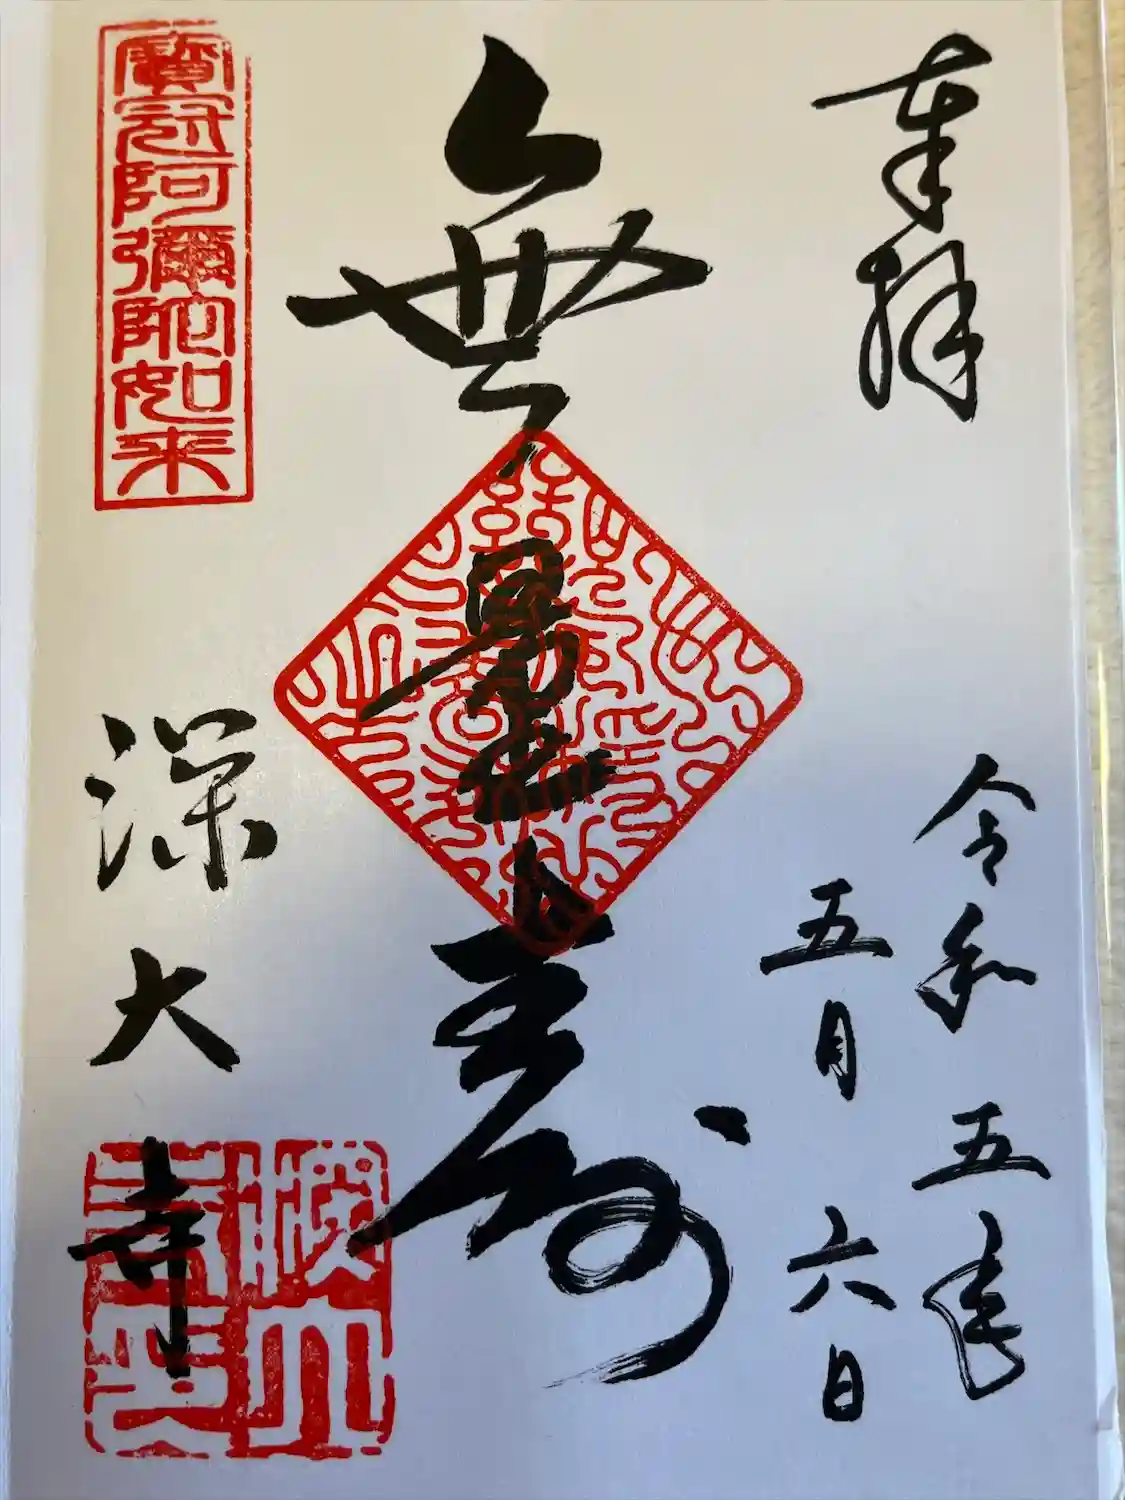 奉拝
令和五年
五月六日
無量寿
寳冠阿彌陀如来
深大寺